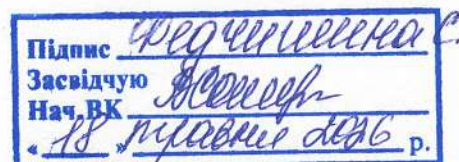 Підпис Федчишина С.
Засвідчую
Нач.ВК
« 18 » травня 2026 р.